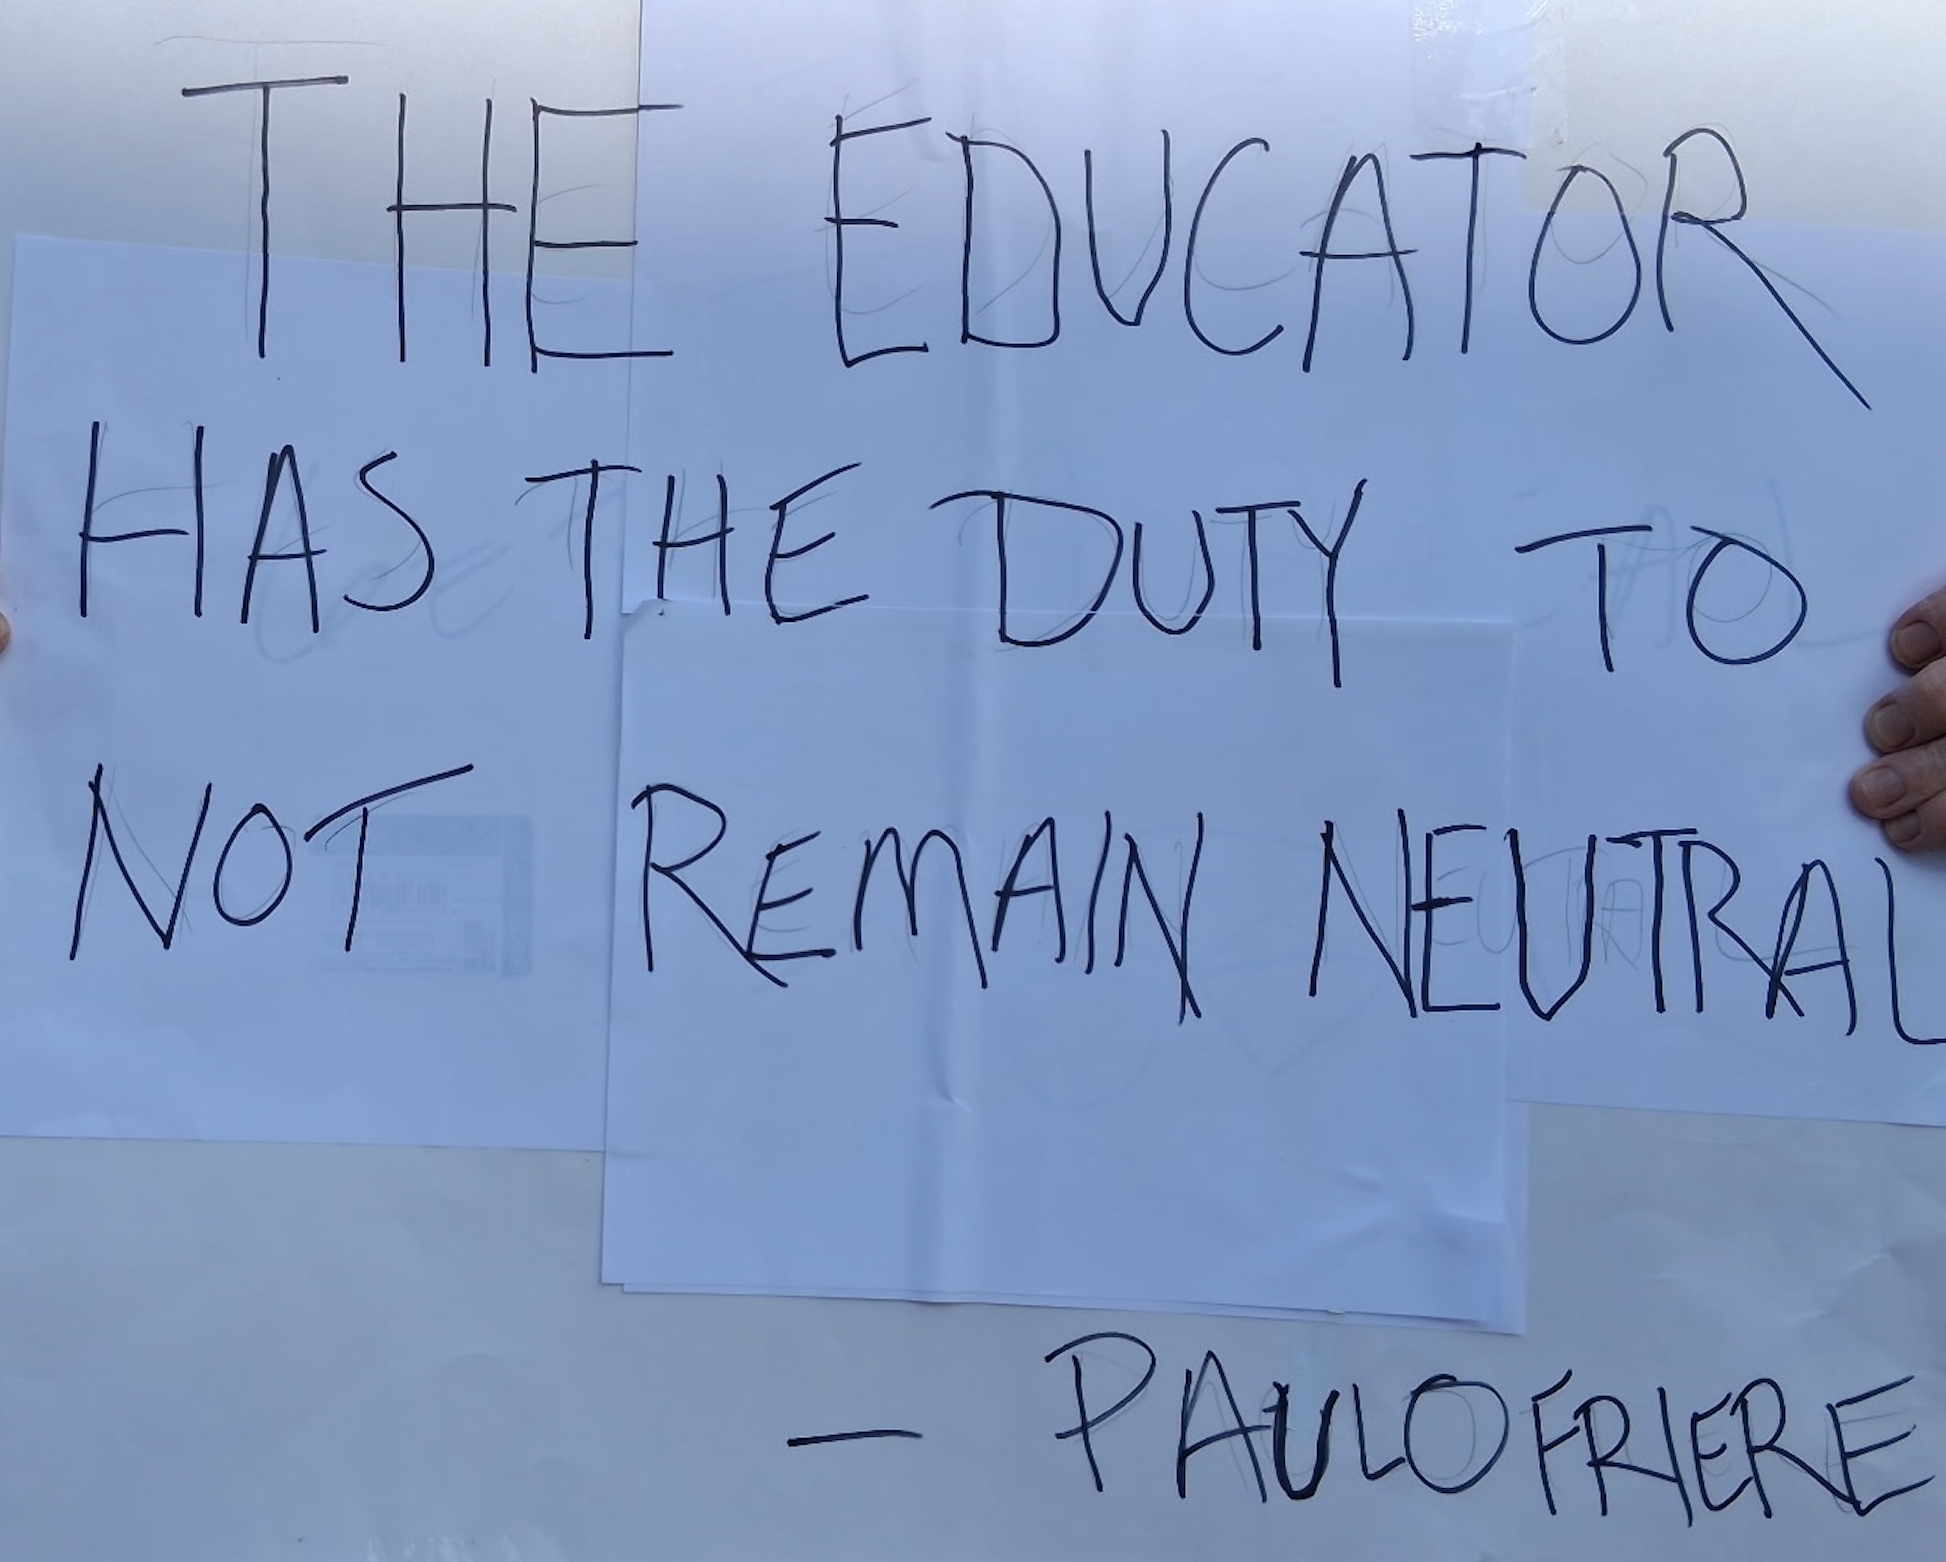 THE EDUCATOR
HAS THE DUTY TO
NOT REMAIN NEUTRAL
— PAULO FRIERE